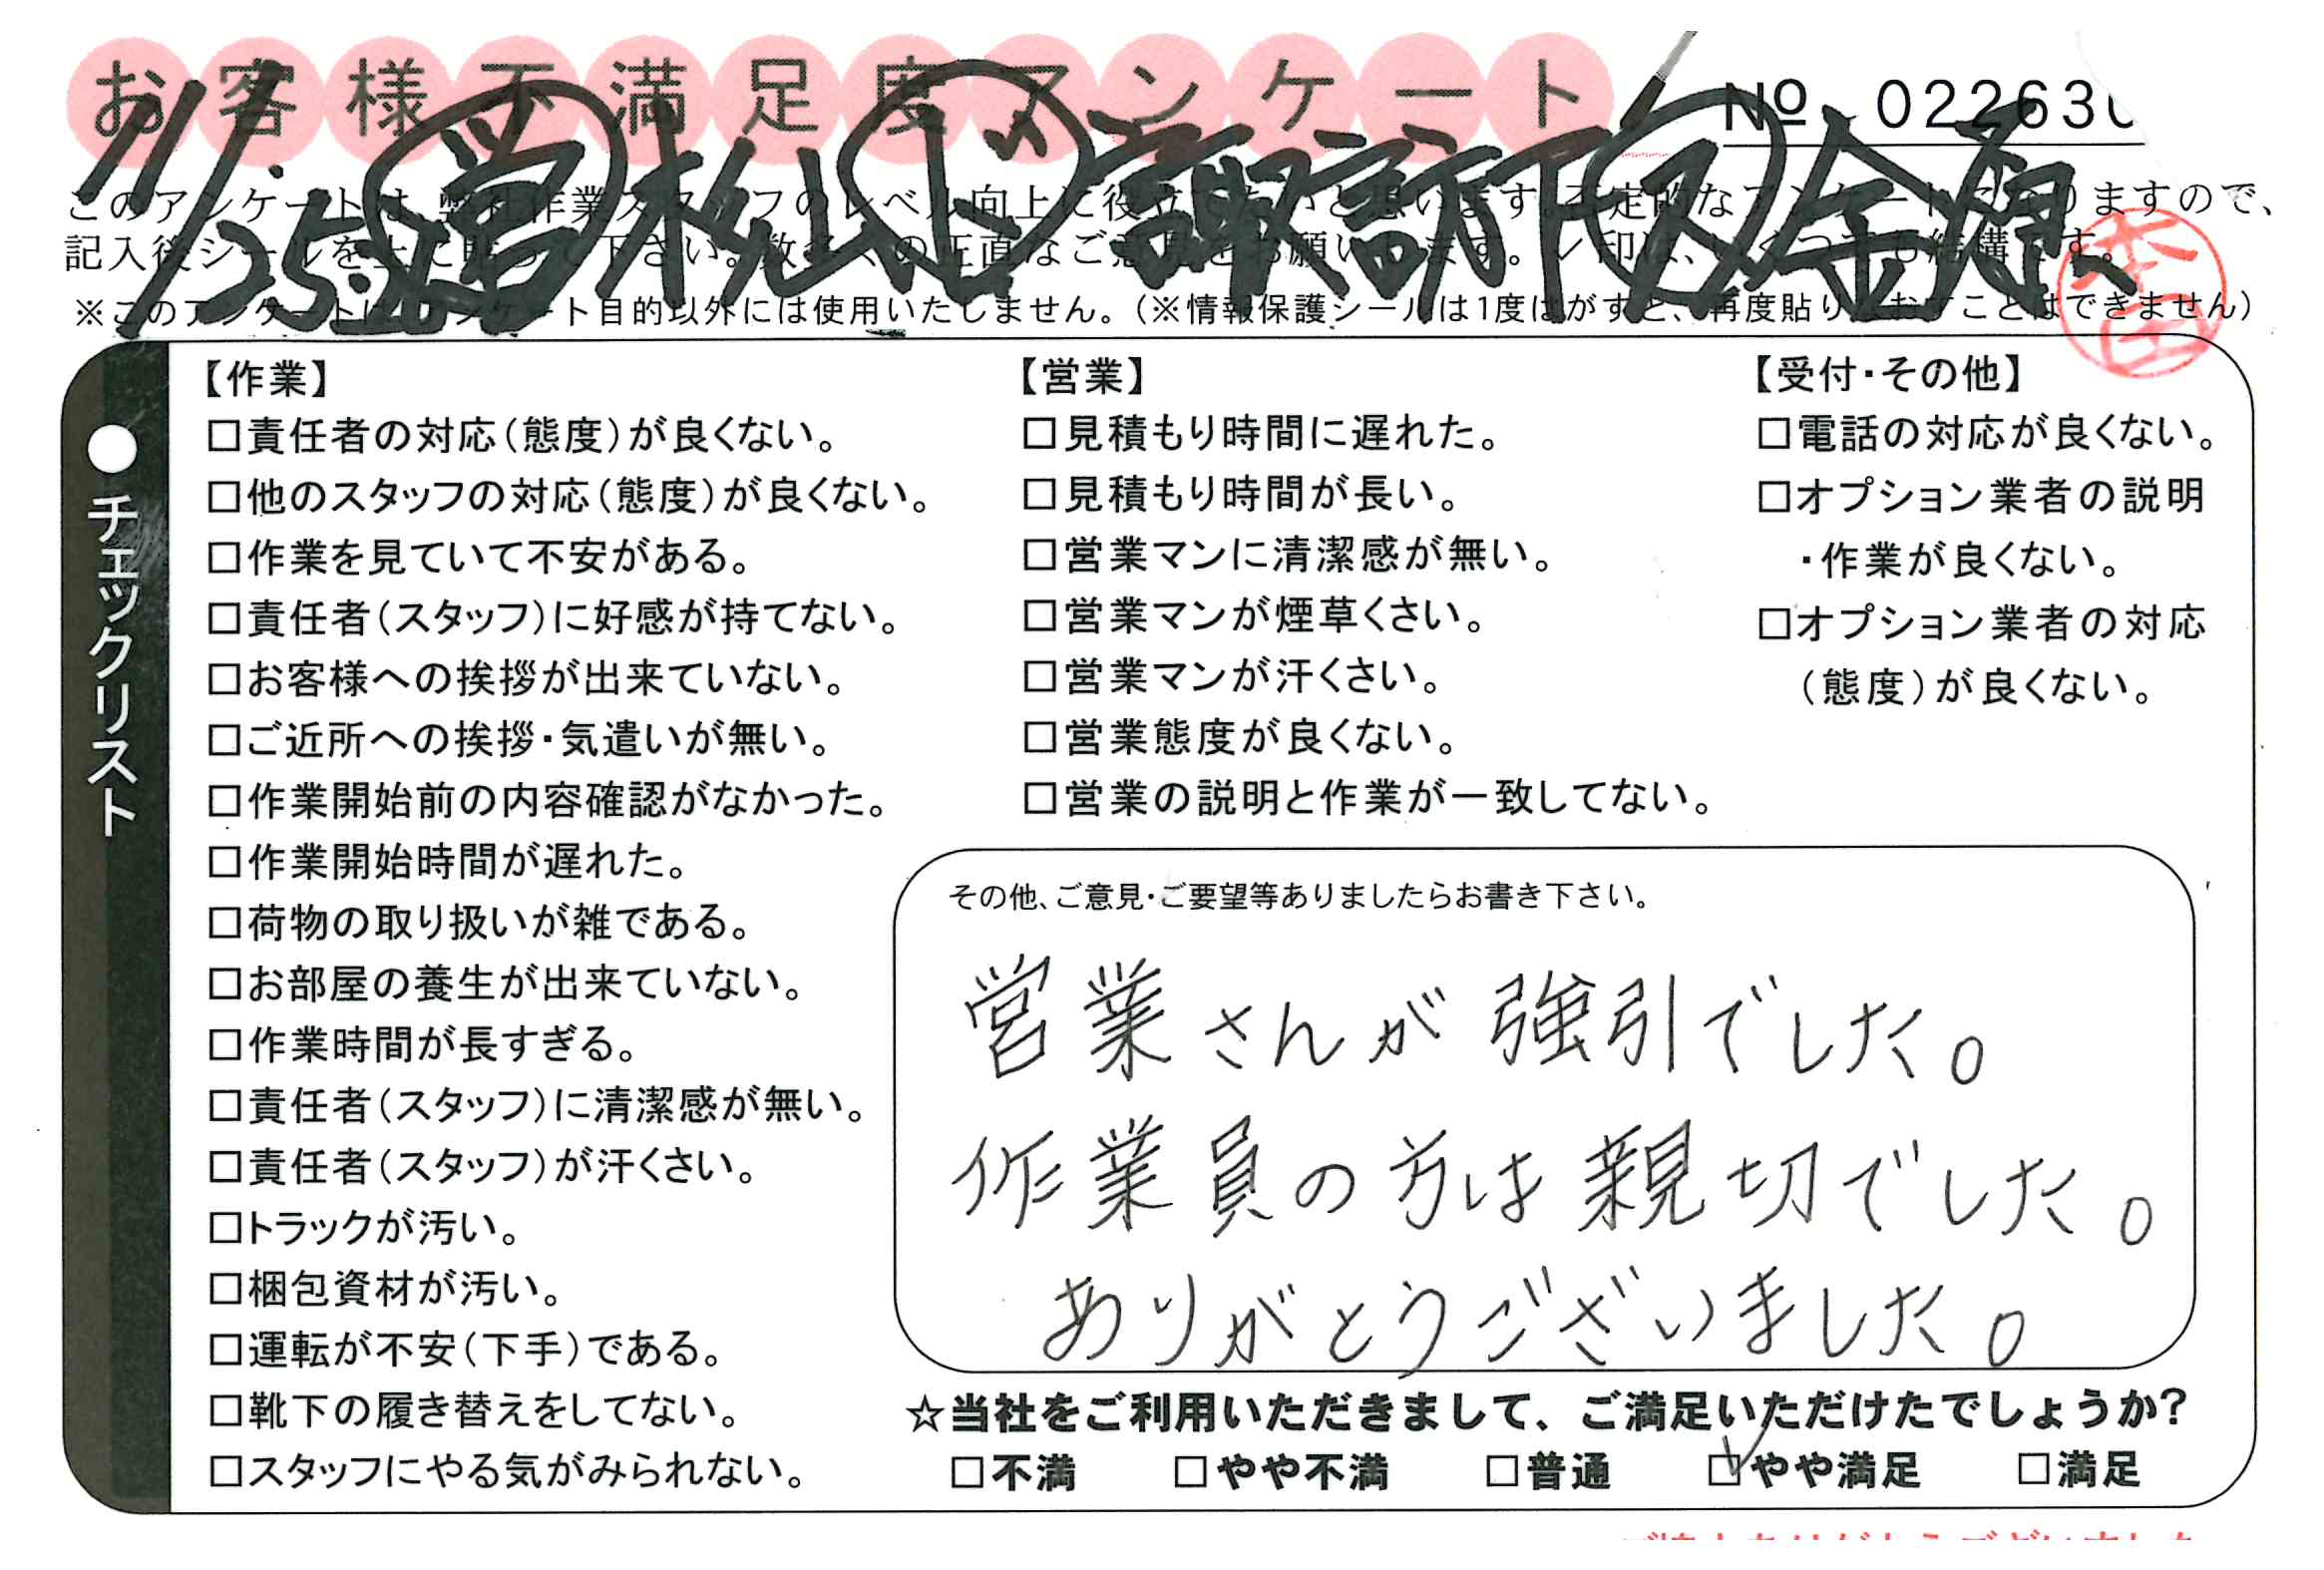 お客様不満足度アンケート
№ 022630
11/25・26 営 松山 上 諏訪下 又 金原
このアンケートは、弊社作業スタッフのレベル向上に役立てたいと思います。不定的なアンケートになりますので、
記入後シールを上に貼って下さい。数多くの正直なご意見をお願いします。レ印は、いくつでも結構です。
本田
※このアンケートはアンケート目的以外には使用いたしません。（※情報保護シールは1度はがすと、再度貼りなおすことはできません）
●チェックリスト
【作業】
□責任者の対応（態度）が良くない。
□他のスタッフの対応（態度）が良くない。
□作業を見ていて不安がある。
□責任者（スタッフ）に好感が持てない。
□お客様への挨拶が出来ていない。
□ご近所への挨拶・気遣いが無い。
□作業開始前の内容確認がなかった。
□作業開始時間が遅れた。
□荷物の取り扱いが雑である。
□お部屋の養生が出来ていない。
□作業時間が長すぎる。
□責任者（スタッフ）に清潔感が無い。
□責任者（スタッフ）が汗くさい。
□トラックが汚い。
□梱包資材が汚い。
□運転が不安（下手）である。
□靴下の履き替えをしてない。
□スタッフにやる気がみられない。
【営業】
□見積もり時間に遅れた。
□見積もり時間が長い。
□営業マンに清潔感が無い。
□営業マンが煙草くさい。
□営業マンが汗くさい。
□営業態度が良くない。
□営業の説明と作業が一致してない。
【受付・その他】
□電話の対応が良くない。
□オプション業者の説明
・作業が良くない。
□オプション業者の対応
（態度）が良くない。
その他、ご意見・ご要望等ありましたらお書き下さい。
営業さんが強引でした。
作業員の方は親切でした。
ありがとうございました。
☆当社をご利用いただきまして、ご満足いただけたでしょうか?
□不満 □やや不満 □普通 ☑やや満足 □満足